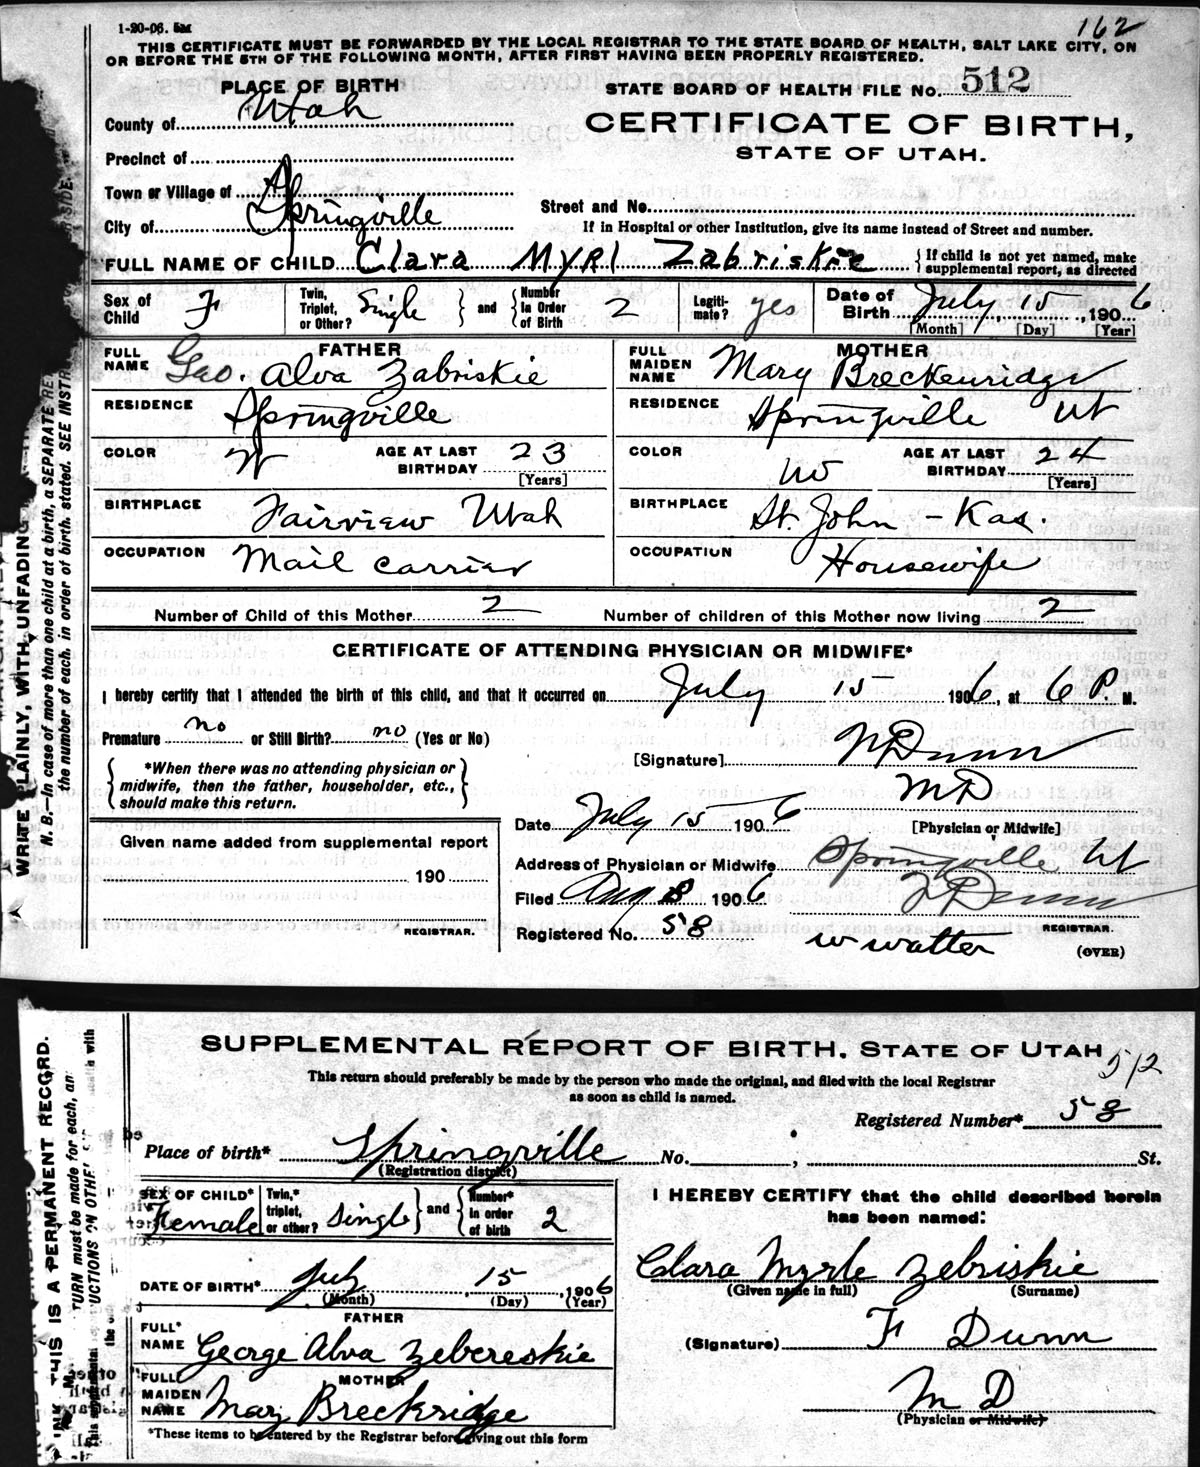 1-20-06. 5M
162
THIS CERTIFICATE MUST BE FORWARDED BY THE LOCAL REGISTRAR TO THE STATE BOARD OF HEALTH, SALT LAKE CITY, ON
OR BEFORE THE 5TH OF THE FOLLOWING MONTH, AFTER FIRST HAVING BEEN PROPERLY REGISTERED.
PLACE OF BIRTH
STATE BOARD OF HEALTH FILE No. 512
County of Utah
CERTIFICATE OF BIRTH,
STATE OF UTAH.
Precinct of
Town or Village of
City of Springville
Street and No.
If in Hospital or other Institution, give its name instead of Street and number.
FULL NAME OF CHILD Clara Myrl Zabriskie { If child is not yet named, make supplemental report, as directed
Sex of Child F Twin, Triplet, or Other? Single } and { Number in Order of Birth 2 Legitimate? yes Date of Birth July 15, 1906
[Month] [Day] [Year]
FATHER
FULL NAME Geo. Alva Zabriskie
RESIDENCE Springville
COLOR W AGE AT LAST BIRTHDAY 23 [Years]
BIRTHPLACE Fairview Utah
OCCUPATION Mail carrier
MOTHER
FULL MAIDEN NAME Mary Breckenridge
RESIDENCE Springville Ut
COLOR W AGE AT LAST BIRTHDAY 24 [Years]
BIRTHPLACE St. John - Kas.
OCCUPATION Housewife
Number of Child of this Mother 2 Number of children of this Mother now living 2
CERTIFICATE OF ATTENDING PHYSICIAN OR MIDWIFE*
I hereby certify that I attended the birth of this child, and that it occurred on July 15 1906, at 6 P. M.
Premature no or Still Birth? no (Yes or No)
[Signature] Dunn
MD
[Physician or Midwife]
{ *When there was no attending physician or
midwife, then the father, householder, etc.,
should make this return. }
Date July 15 1906
Given name added from supplemental report
190
REGISTRAR.
Address of Physician or Midwife Springville Ut
Filed Aug 8 1906 Dunn
REGISTRAR.
Registered No. 58
(OVER)
WRITE PLAINLY, WITH UNFADING
N. B.—In case of more than one child at a birth, a SEPARATE RE
the number of each, in order of birth, stated. SEE INSTR
SUPPLEMENTAL REPORT OF BIRTH. STATE OF UTAH
512
This return should preferably be made by the person who made the original, and filed with the local Registrar
as soon as child is named.
Registered Number* 58
Place of birth* Springville No. , St.
(Registration district)
SEX OF CHILD* Female Twin,* triplet, or other? Single } and { Number* in order of birth 2
I HEREBY CERTIFY that the child described herein
has been named:
Clara Myrle Zebriskie
(Given name in full) (Surname)
DATE OF BIRTH* July 15, 1906
(Month) (Day) (Year)
FATHER
FULL* NAME George Alva Zebereskie
(Signature) F Dunn
MOTHER
FULL MAIDEN NAME Mary Breckridge
M D
(Physician or Midwife)
*These items to be entered by the Registrar before giving out this form
INK THIS IS A PERMANENT RECORD.
TURN must be made for each, an